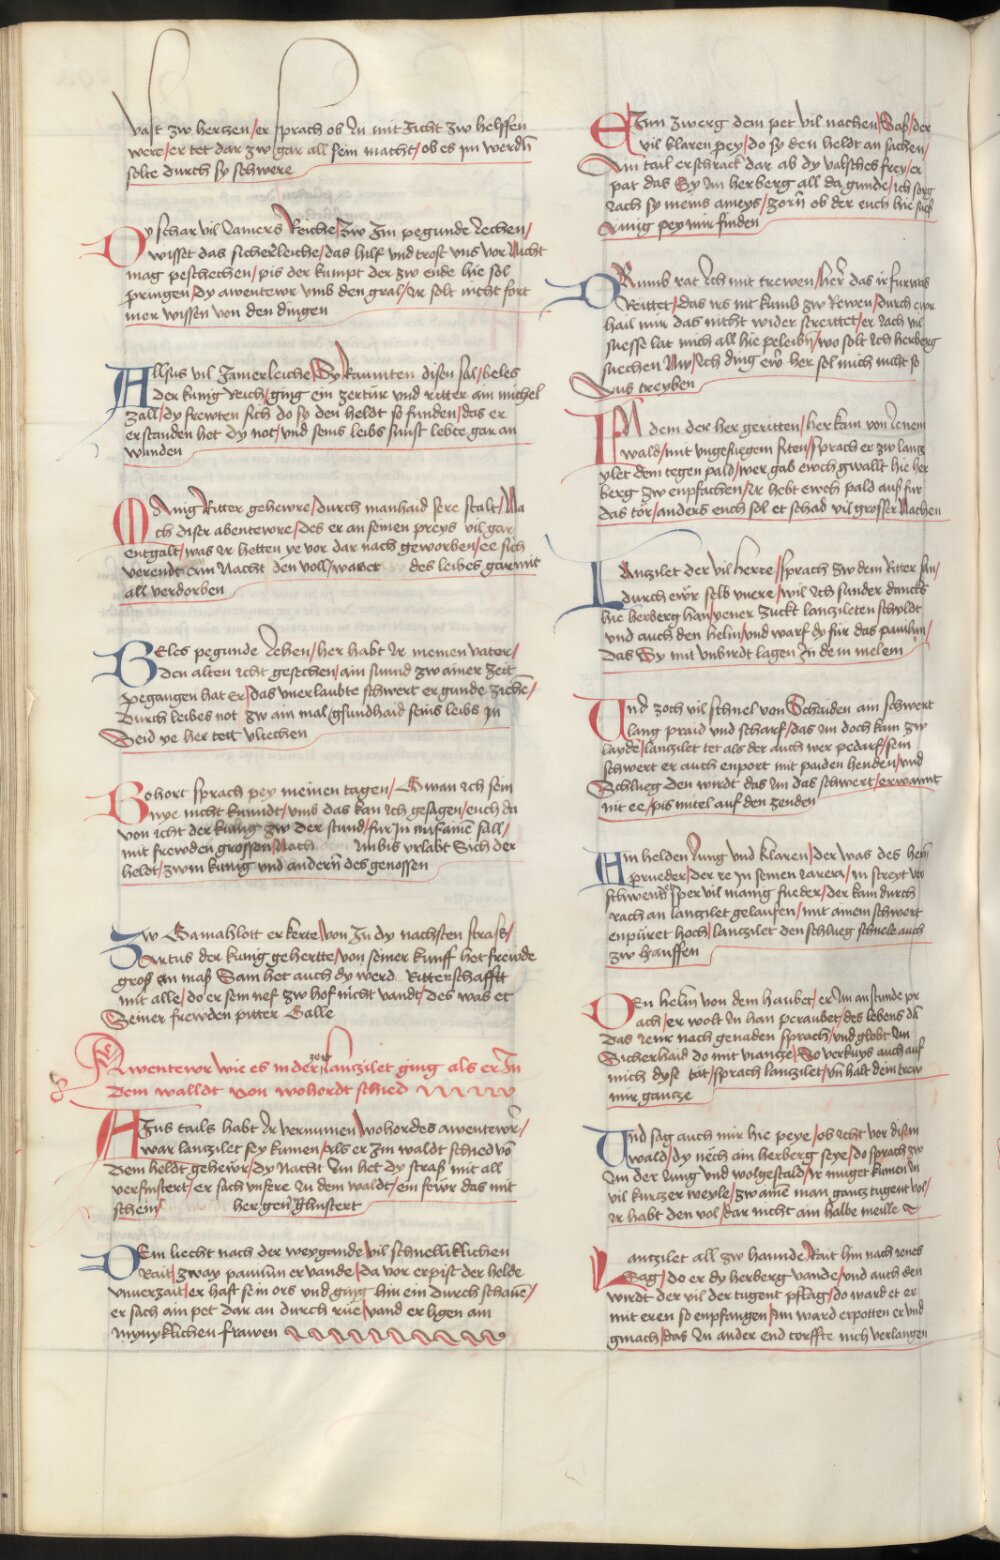 vast zw hertzen/er sprach ob In mit Zicht zw helffen
were/er tet dar zw gar all sein macht/ob es im werdn̄
solte durch sy schwere
Dy schar vil Jamers Reiche/Zw Im pegunde Iechen/
wisset das sicherleiche/das hilf vnd trost vns vor Nicht
mag peschechen/pis der kumpt der zw ende hie sol
pringen/dy awentewr vmb den gral/Ir solt nicht fort
mer wissen von den dingen
Allsus vil Jamerleiche/Sy Raumten disen sal/beles
der kunig Reich/ging ein zertur vnd ritter ain michel
Zall/dy frewten sich do sy den heldt so funden/das er
erstanden het dy not/vnd seins leibs sunst lebte gar an
wunden
Manig Ritter gehewre/durch manhaid sere stalt/Na
ch diser abentewre/des er an seinen preys vil gar
entgalt/was Ir hetten ye vor dar nach geworben/ee sich
verendt ain Nacht den voll/waret des leibes gar mit
all verdorben
Beles pegunde Iehen/her habt Ir meinen vater/
den alten icht gesechen/ain stund zw ainer Zeit
pegangen hat Er/das vnerlaubte schwert er gunde ziche/
durch leibes not zw ain mal/gsundhaid seins leibs In
Seid ye her tett vliechen
Bohort sprach pey meinen tagen/Gwan ich sein
nye nicht kunndt/vmb das kan ich gesagen/euch da
von icht der kunig zw der stund/fur In
mit frewden grossen/Nach Imbis vrlabt Sich der
heldt/zwm kunig vnd andern̄ des genossen
Zw Gamahlott er kerte/von In dy nachsten strass/
Artus der kunig geherte/von seiner kunfft het freude
gross an mass Sam het auch dy werd Ritterschafft
mit alle/do er sein nef zw hof nicht vandt/des was et
Seiner frewden pitter Galle
Awentewr wie es in der zeit lanzilet ging als er In
dem walldt von wohordt schied
Ains tails habt Ir vernumen/wohordes awentewr/
war lanzilet sey kumen/als er Im waldt schied vō
dem heldt gehewr/dy Nacht Im het dy strass mit all
verfinstert/er sach vnsere In dem waldt/ein fewr das mit
schein her gen Im glinstert
Dem liecht nach der weygande/vil schnelliklichen
Rait/zway paulun er vande/da vor erpist der helde
vnuerzait/er haft sein ors vnd ging hin ein durch schawē/
er sach ain pet dar an durch rue/vand er ligen ain
mynyklichen frawen
Ein zwerg dem pet vil nachen/Sass/der
vil klaren pey/do sy den heldt an sachen/
Ain tail erschrack dar ab dy valsches frey/er
pat das Sy Im herberg all da gunde/ich sorg
sach sy meins ameys/zorn̄ ob der euch hie
Ainig pey mir finden
Darumb rat Ich mit trewen/her das ir furwas
Reittet/das irs nit kumb zw Rewen/durch ewr
hail mir das nicht wider streittet/er sach vil
suesse lat mich all hie peleibn̄/wo solt Ich herberg
suechen Nw/Ich ding ew̄ her sol mich nicht so
Aus treyben
In dem der her geritten/her kam von Ienem
wald/mit vngefuegem siten/sprach er zw lanz
ylet dem tegen pald/wer gab ewch gwallt hie her
berg zw enpfachen/Ir hebt ewch pald aus fur
das tor/anders euch sol et schad vil grosser Nachen
Lanzilet der vil herte/sprach zw dem Ritter san/
durch ewr selb vnere/wil ich sunder dancks
hie herberg han/yener Zuckt lanzileten schildt
vnd auch den helm/vnd warf dy fur das paulun/
das Sy mit vnbirdt lagen In dem melem
Und zoch vil schnel von Schaiden ain schwert
lang praid vnd scharf/das im doch kam zw
layde/lanzilet tet als der auch wer pedarf/sein
schwert er auch enport mit paiden henden/vnd
Schlueg den wirdt das Im das schwert/erwannt
nit ee/pis mitel auf den zenden
Ain helden Iung vnd klaren/der was des hern̄
prueder/der ee In seinen Iaren/in streyt ver
schwendt sper vil manig fueder/der kam durch
rach an lanzilet gelaufen/mit ainem schwert
enpuret hoch/lanzilet den schlueg schnele auch
zw hauffen
Den helm von dem haubet/er Im an stunde pr
ach/er wolt In han peraubet/des lebens do
das Iener nach genaden sprach/vnd globt Im
Sicherhaid do mit viancze/So verkuys auch auf
mich dyse tat/sprach lanzilet/vn̄ halt dem trew
mir gancze
Und sag auch mir hie peye/ob icht vor disem
wald/dy nech ain herberg seye/do sprach zw
Im der Iung vnd wolgestald/Ir muget kumen In
vil kurczer weyle/zw aine man gancz tugent vol/
Ir habt den vol/dar nicht ain halbe meille
Lanzilet all zw hannde/Rait hin nach ienes
Sag/do er dy herberg vande/vnd auch den
wirdt der vil der tugent pflag/do ward et er
mit eren so enpfangen/im ward erpotten er vnd
gmach/das In ander end torffte nich verlangen